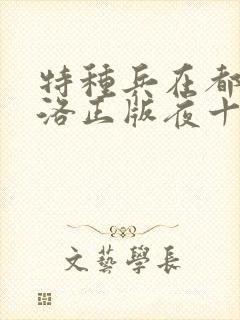 特種兵在都
洛正版夜十
文藝學長